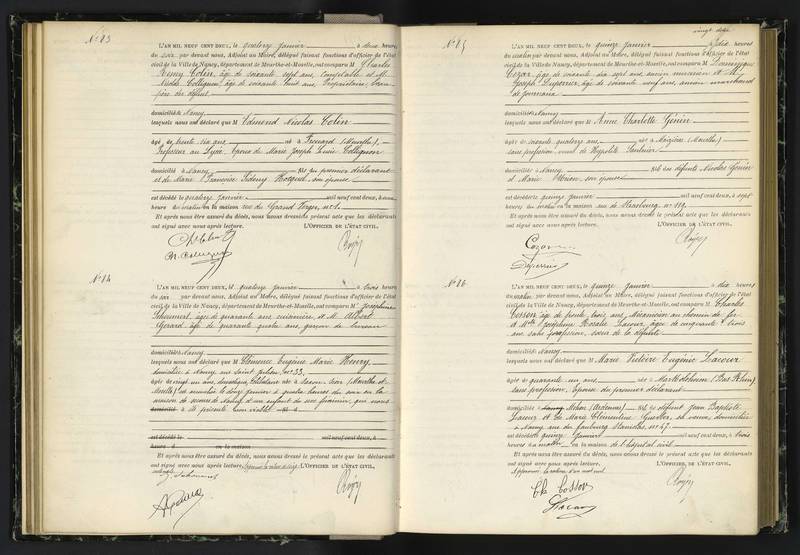 N° 83
L'AN MIL NEUF CENT DEUX, le quatorze janvier à deux heures
du soir par devant nous, Adjoint au Maire, délégué faisant fonctions d'officier de l'état
civil de la Ville de Nancy, département de Meurthe-et-Moselle, ont comparu M Charles
Remy Colin, âgé de soixante sept ans, comptable et M.
Nicolas Collignon, âgé de soixante huit ans, Propriétaire, beau
père du défunt
domiciliés à Nancy
lesquels nous ont déclaré que M Edmond Nicolas Colin
âgé de trente six ans né à Frouard (Meurthe),
Professeur au Lycée, Epoux de Marie Joseph Lucie Collignon
domicilié à Nancy fils du premier déclarant
et de Marie Françoise Sidony Hocquel, son épouse
est décédé le quatorze janvier mil neuf cent deux, à
heures du matin en la maison rue du Grand Verger, n° 1.
Et après nous être assuré du décès, nous avons dressé le présent acte que les déclarants
ont signé avec nous après lecture. L'OFFICIER DE L'ÉTAT CIVIL,
N° 84
L'AN MIL NEUF CENT DEUX, le quatorze janvier à trois heures
du soir par devant nous, Adjoint au Maire, délégué faisant fonctions d'officier de l'état
civil de la Ville de Nancy, département de Meurthe-et-Moselle, ont comparu M Joséphine
âgée de quarante ans et M. Albert
Gérard âgé de quarante quatre ans garçon de bureau
domiciliés à Nancy
lesquels nous ont déclaré que M Clémence Eugénie Marie Henry
domiciliée à Nancy, rue Saint n° 33,
âgée de vingt un ans, domestique, Célibataire née à (Meurthe et
Moselle) est accouchée le douze janvier à quatre heures du soir en la
maison de secours de Nancy d'un enfant du sexe féminin, qui nous
domicilié à été présenté sans vie
est décédé le mil neuf cent deux, à
heures d en la maison
Et après nous être assuré du décès, nous avons dressé le présent acte que les déclarants
ont signé avec nous après lecture. L'OFFICIER DE L'ÉTAT CIVIL,
A Gérard
vingt deux
N° 85
L'AN MIL NEUF CENT DEUX, le quinze janvier à dix heures
du matin par devant nous, Adjoint au Maire, délégué faisant fonctions d'officier de l'état
civil de la Ville de Nancy, département de Meurthe-et-Moselle, ont comparu M Dominique
Cozar, âgé de soixante dix sept ans, ancien et M.
Joseph âgé de soixante neuf ans, ancien marchand
de
domiciliés à Nancy
lesquels nous ont déclaré que M Anne Charlotte Génin
âgée de soixante quatorze ans née à Maizières (Meurthe)
sans profession, veuve de Hippolyte Saulnier
domiciliée à Nancy fille des défunts Nicolas Génin
et Marie son épouse
est décédée le quinze janvier mil neuf cent deux, à sept
heures du matin en la maison rue de Strasbourg, n° 119.
Et après nous être assuré du décès, nous avons dressé le présent acte que les déclarants
ont signé avec nous après lecture. L'OFFICIER DE L'ÉTAT CIVIL,
N° 86
L'AN MIL NEUF CENT DEUX, le quinze janvier à dix heures
du matin par devant nous, Adjoint au Maire, délégué faisant fonctions d'officier de l'état
civil de la Ville de Nancy, département de Meurthe-et-Moselle, ont comparu M Charles
Cosson, âgé de trente trois ans, Mécanicien au chemin de fer
et Mlle Joséphine Rosalie Lacour âgée de cinquante trois
ans sans profession, soeur de la défunte
domiciliés à Nancy
lesquels nous ont déclaré que M Marie Victoire Eugénie Lacour
âgée de quarante un ans née à (Bas Rhin)
sans profession, Epouse du premier déclarant
domiciliée à Mohon (Ardennes) fille de défunt Jean Baptiste
Lacour et de Marie Clémentine sa veuve, domiciliée
à Nancy rue du faubourg Stanislas, n° 47.
est décédée le quinze janvier mil neuf cent deux, à trois
heures du matin en la maison de l'hôpital civil
Et après nous être assuré du décès, nous avons dressé le présent acte que les déclarants
ont signé avec nous après lecture. L'OFFICIER DE L'ÉTAT CIVIL,
Approuvé la rature d'un mot nul
Ch Cosson